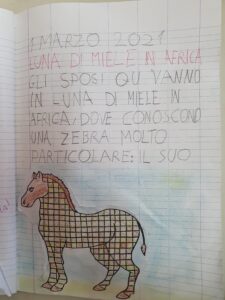 1 MARZO 2021
LUNA DI MIELE IN AFRICA
GLI SPOSI QU VANNO
IN LUNA DI MIELE IN
AFRICA, DOVE CONOSCONO
UNA ZEBRA MOLTO
PARTICOLARE: IL SUO